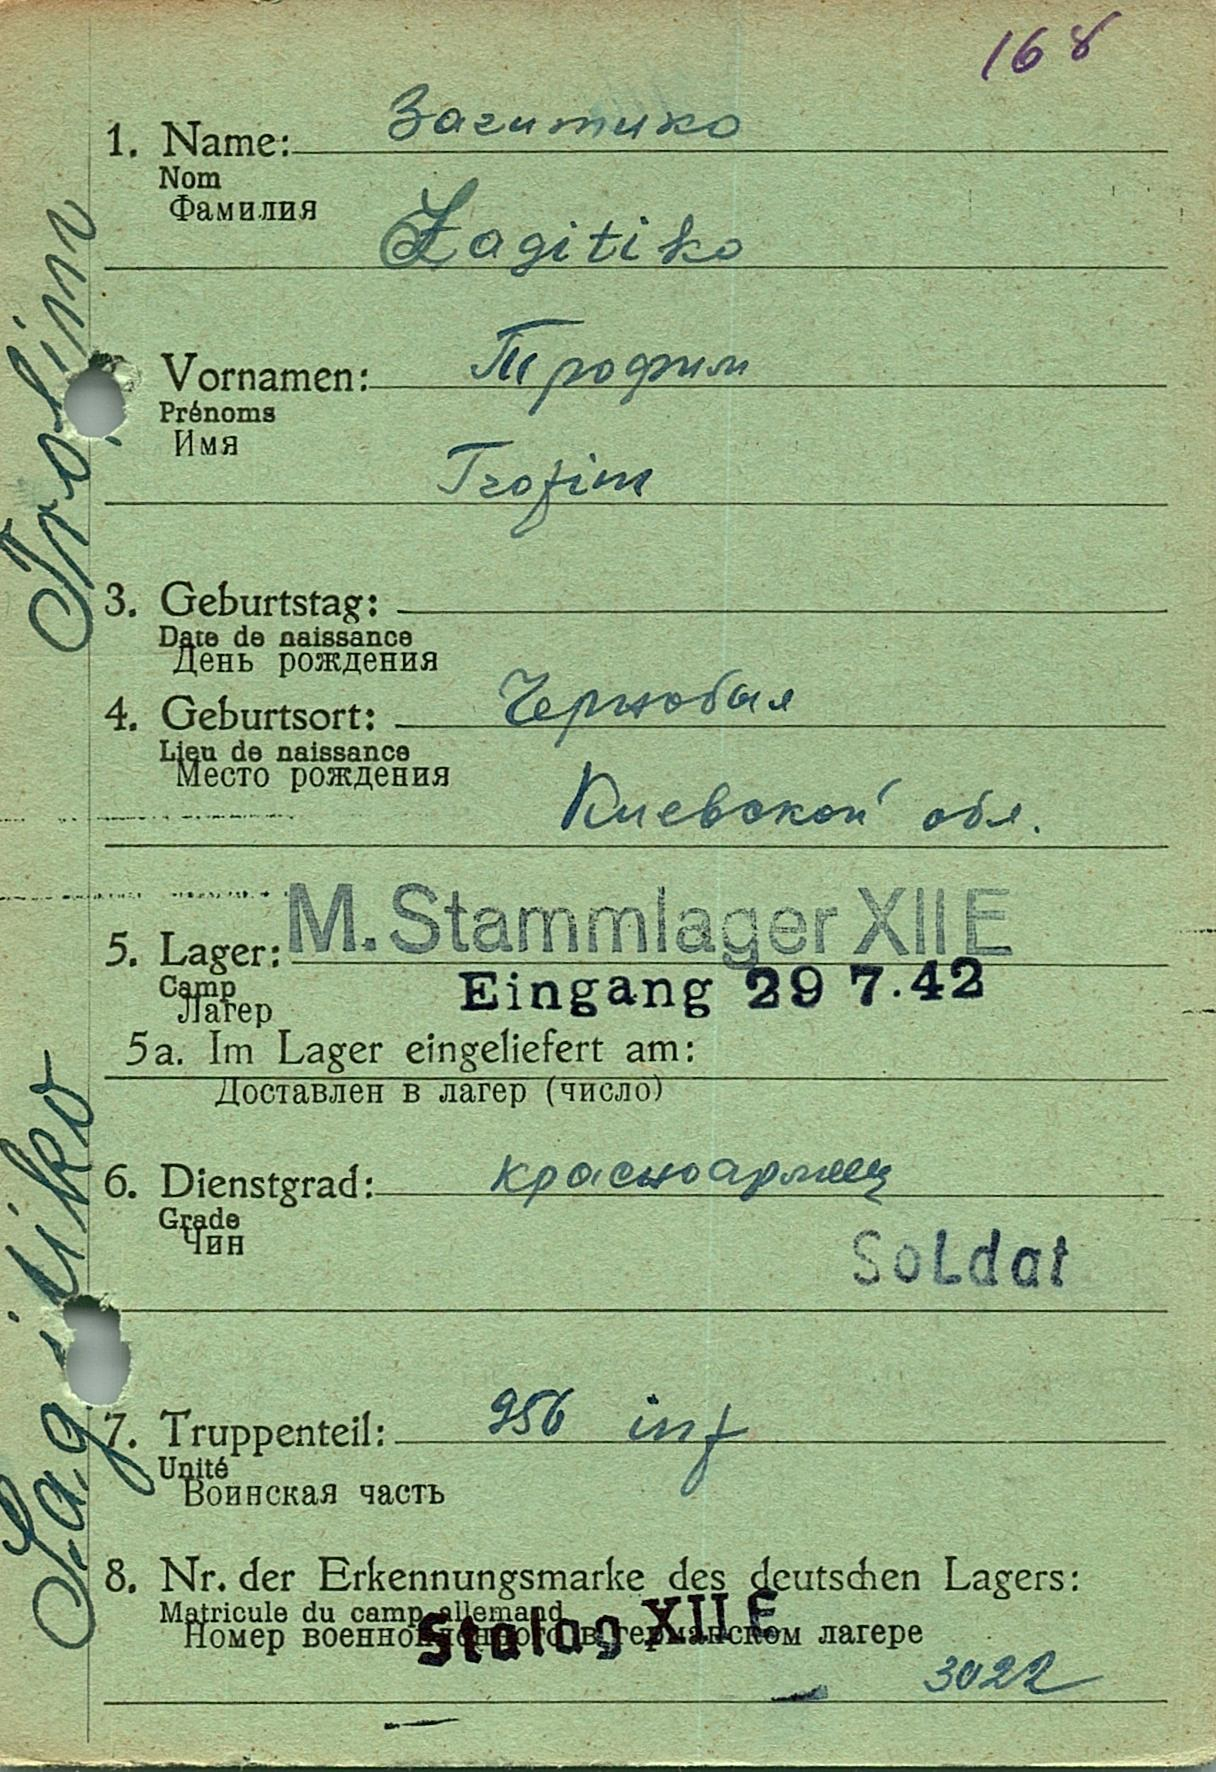 168
1. Name: Загитико
Nom
Фамилия
Zagitiko
Vornamen: Трофим
Prénoms
Имя
Trofim
3. Geburtstag:
Date de naissance
День рождения
4. Geburtsort: Чернобыл
Lieu de naissance
Место рождения
Киевской обл.
M. Stammlager XII E
5. Lager:
Eingang 29 7.42
Camp
Лагер
5a. Im Lager eingeliefert am:
Доставлен в лагер (число)
6. Dienstgrad: красноармеец
Grade
Чин
Soldat
7. Truppenteil: 956 inf
Unité
Воинская часть
8. Nr. der Erkennungsmarke des deutschen Lagers:
Matricule du camp allemand
Stalag XII E
Номер военнопленного в германском лагере
3022
Sagitiko Trofim